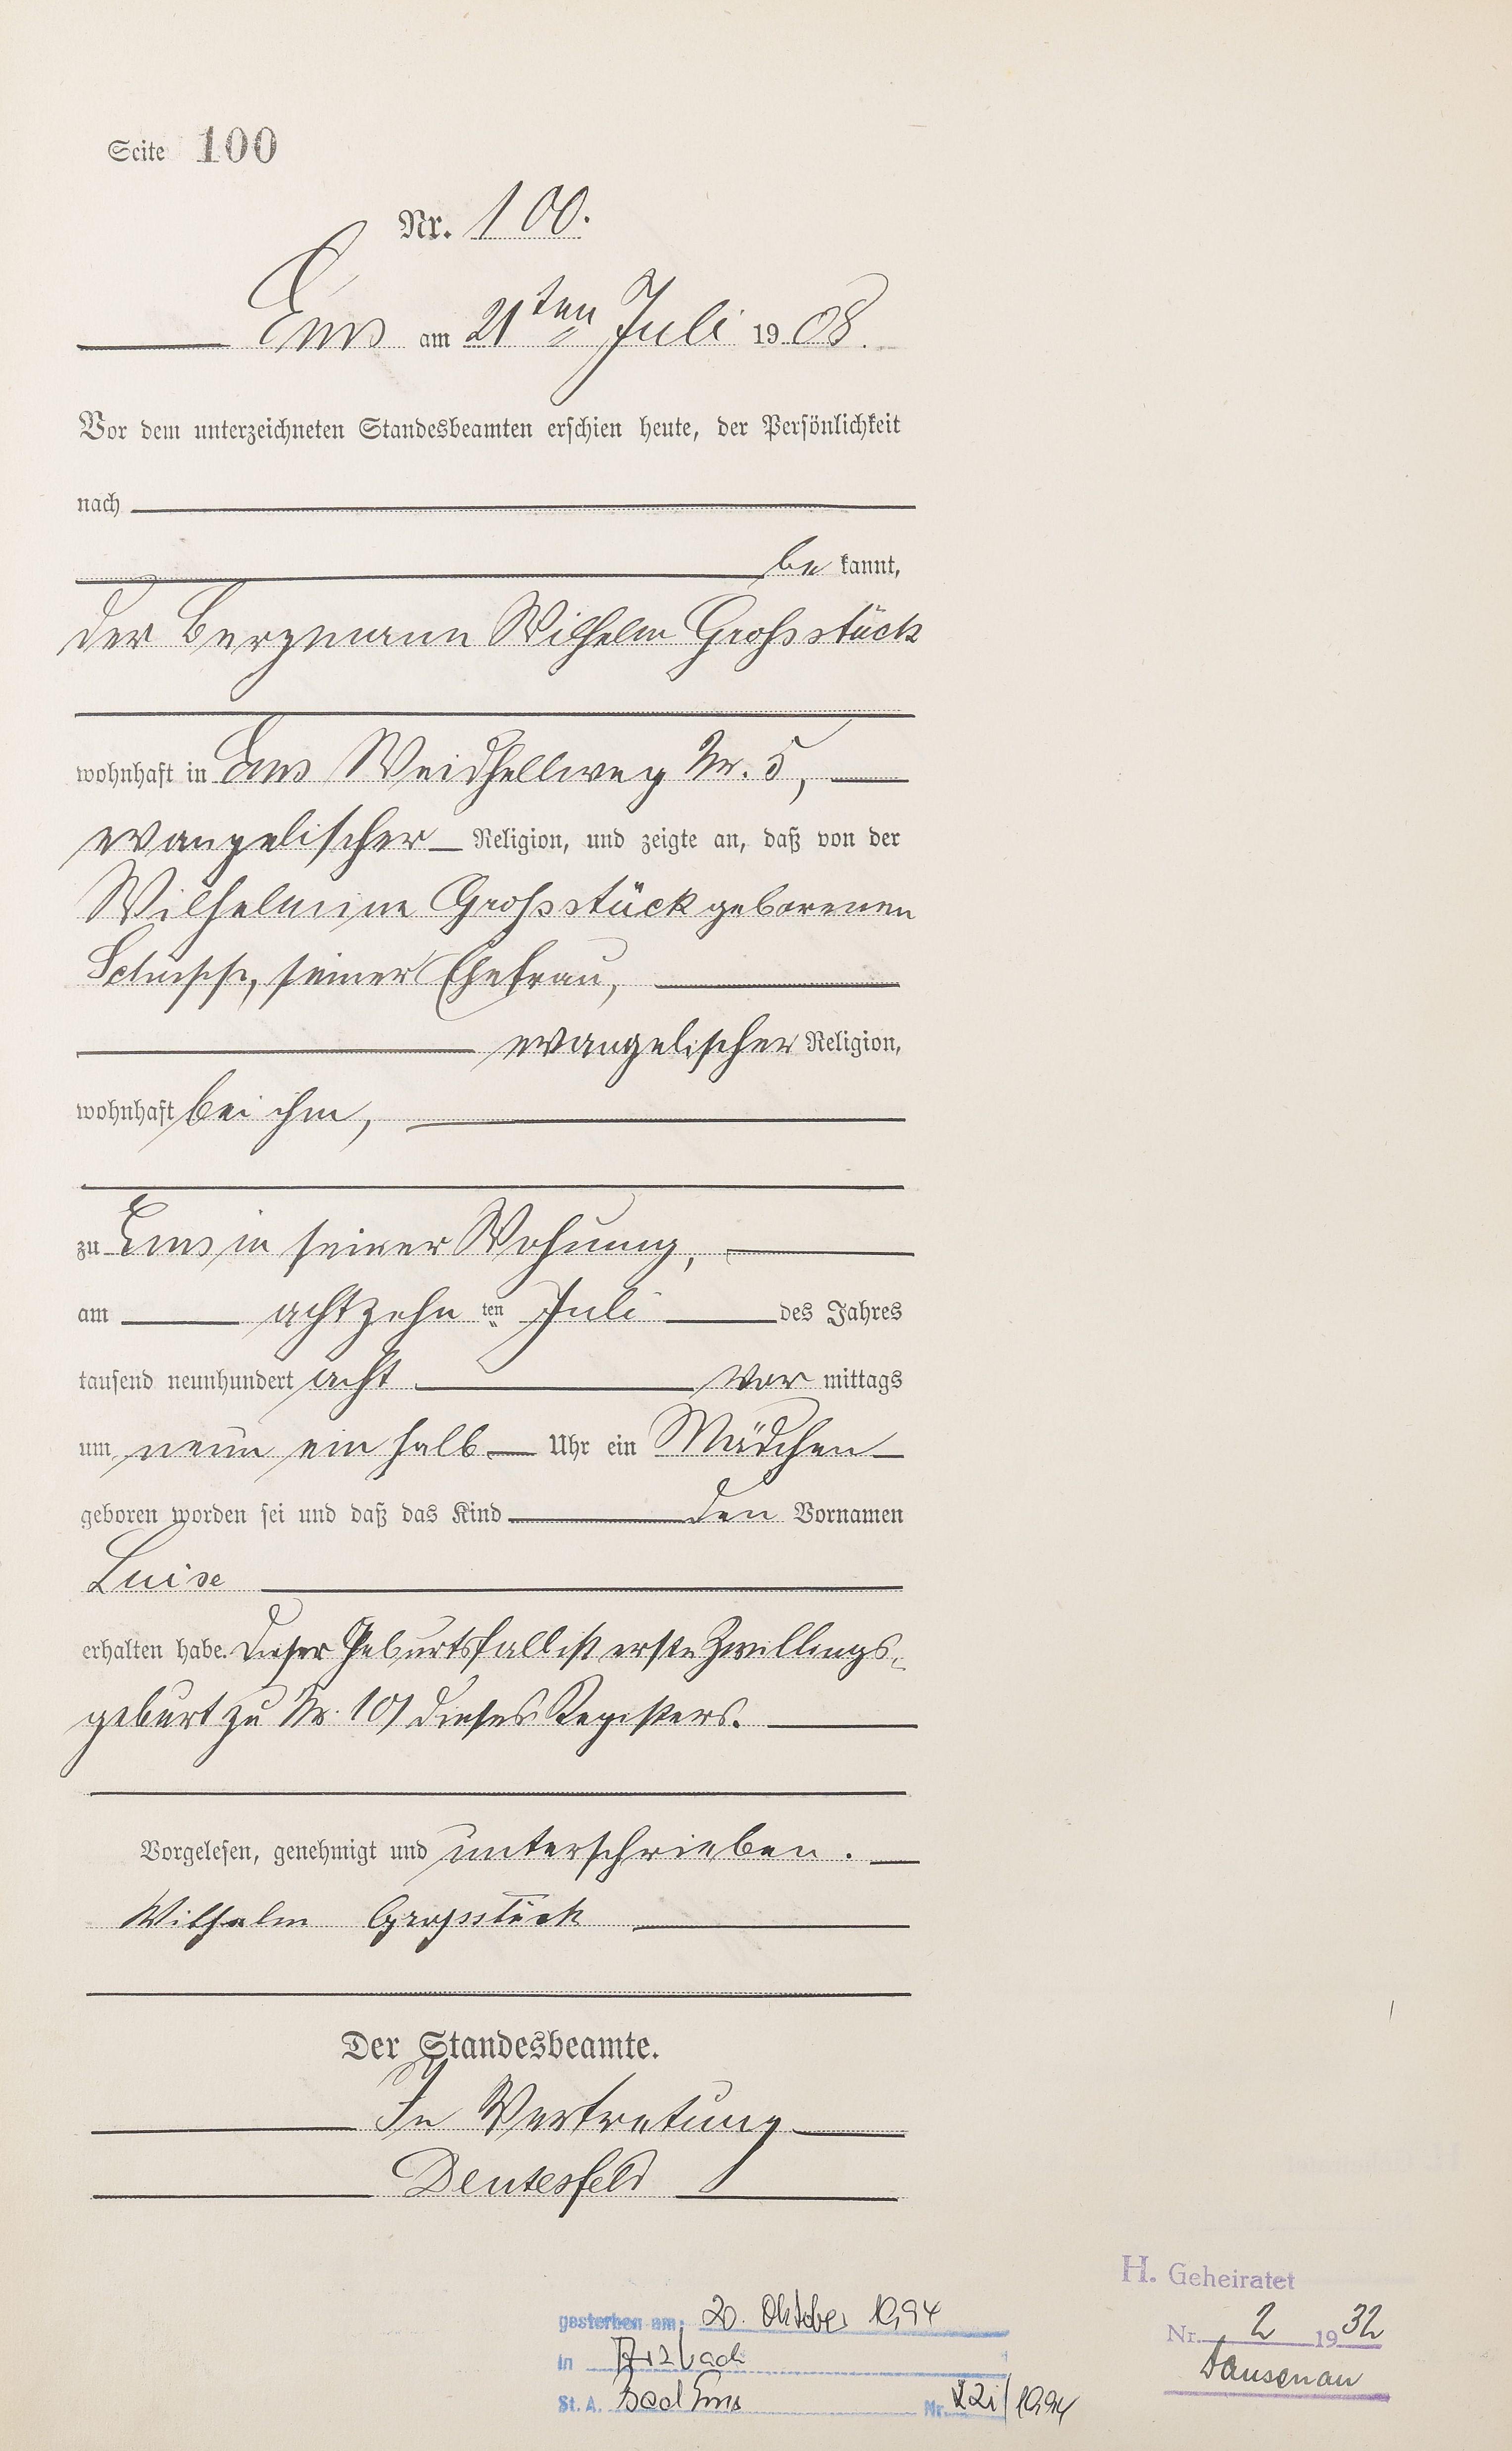 Seite 100
Nr. 100.
Ems am 21ten Juli 1908.
Vor dem unterzeichneten Standesbeamten erschien heute, der Persönlichkeit
nach
be kannt,
der Bergmann Wilhelm Großstück
wohnhaft in Ems Weidhellweg Nr. 5,
evangelischer Religion, und zeigte an, daß von der
Wilhelmine Großstück geborenen
seiner Ehefrau,
evangelischer Religion,
wohnhaft bei ihm,
zu Ems in seiner Wohnung,
am achtzehn ten Juli des Jahres
tausend neunhundert acht vor mittags
um neun ein halb Uhr ein Mädchen
geboren worden sei und daß das Kind den Vornamen
Luise
erhalten habe. Dieser Geburtsfall ist erste Zwillings-
geburt zu Nr. 101 dieses Registers.
Vorgelesen, genehmigt und unterschrieben.
Wilhelm Großstück
Der Standesbeamte.
In Vertretung
Deutesfeld
H. Geheiratet
Nr. 2 1932
Dausenau
gestorben am: 20. Oktober 1994
in Arzbach
St. A. Bad Ems Nr. /1994